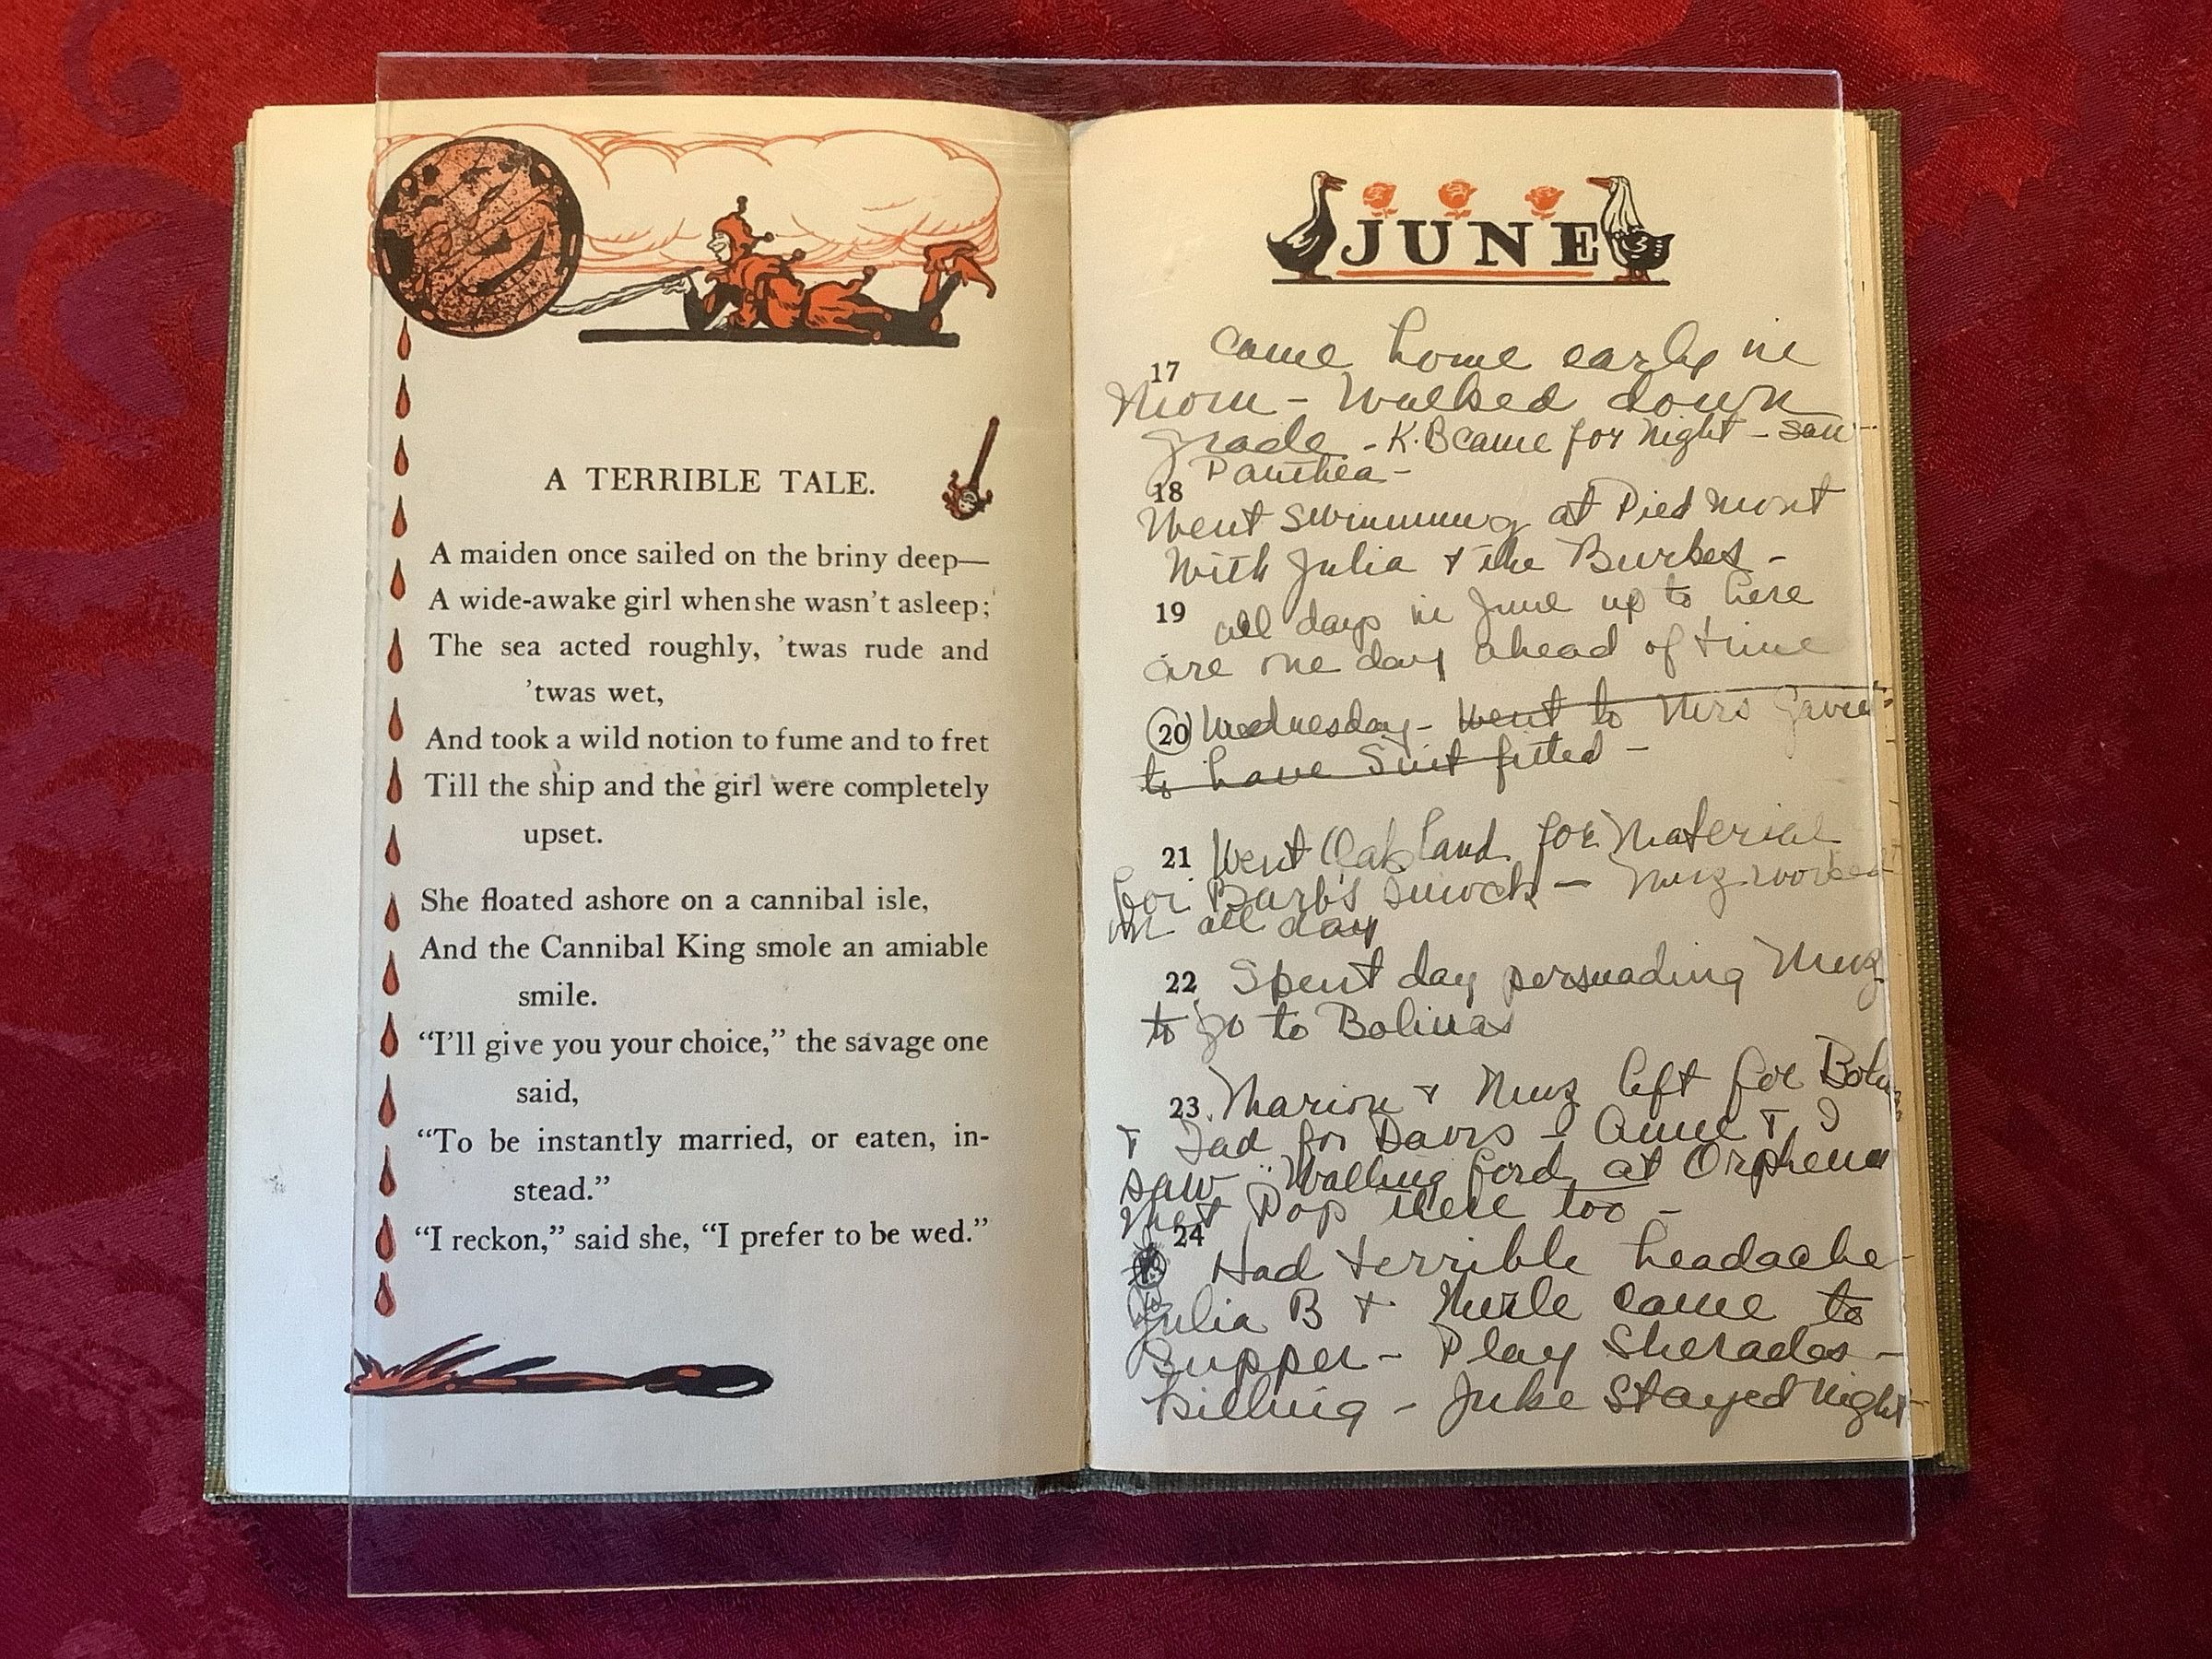 A TERRIBLE TALE.
A maiden once sailed on the briny deep—
A wide-awake girl when she wasn't asleep;
The sea acted roughly, 'twas rude and
'twas wet,
And took a wild notion to fume and to fret
Till the ship and the girl were completely
upset.
She floated ashore on a cannibal isle,
And the Cannibal King smole an amiable
smile.
"I'll give you your choice," the savage one
said,
"To be instantly married, or eaten, in-
stead."
"I reckon," said she, "I prefer to be wed."
JUNE
17 Came home early in
Morn - Walked down
grade - K.B came for night - saw
Panthea -
18
Went swimming at Piedmont
With Julia + the Burkes -
19 all days in June up to here
are one day ahead of time
20 Wednesday - Went to Mrs
to have Suit fitted -
21 Went Oakland for Material
for Barb's Smock - Muz worked
on all day
22 Spent day persuading Muz
to go to Bolinas
23 Marion + Muz left for
+ Dad for Davis - Anne + I
saw Wallingford at Orpheum
Met Pop there too -
24
Had terrible headache -
Julia B + Merle came to
Supper - Play Sherades -
Killing - Juke Stayed Night -